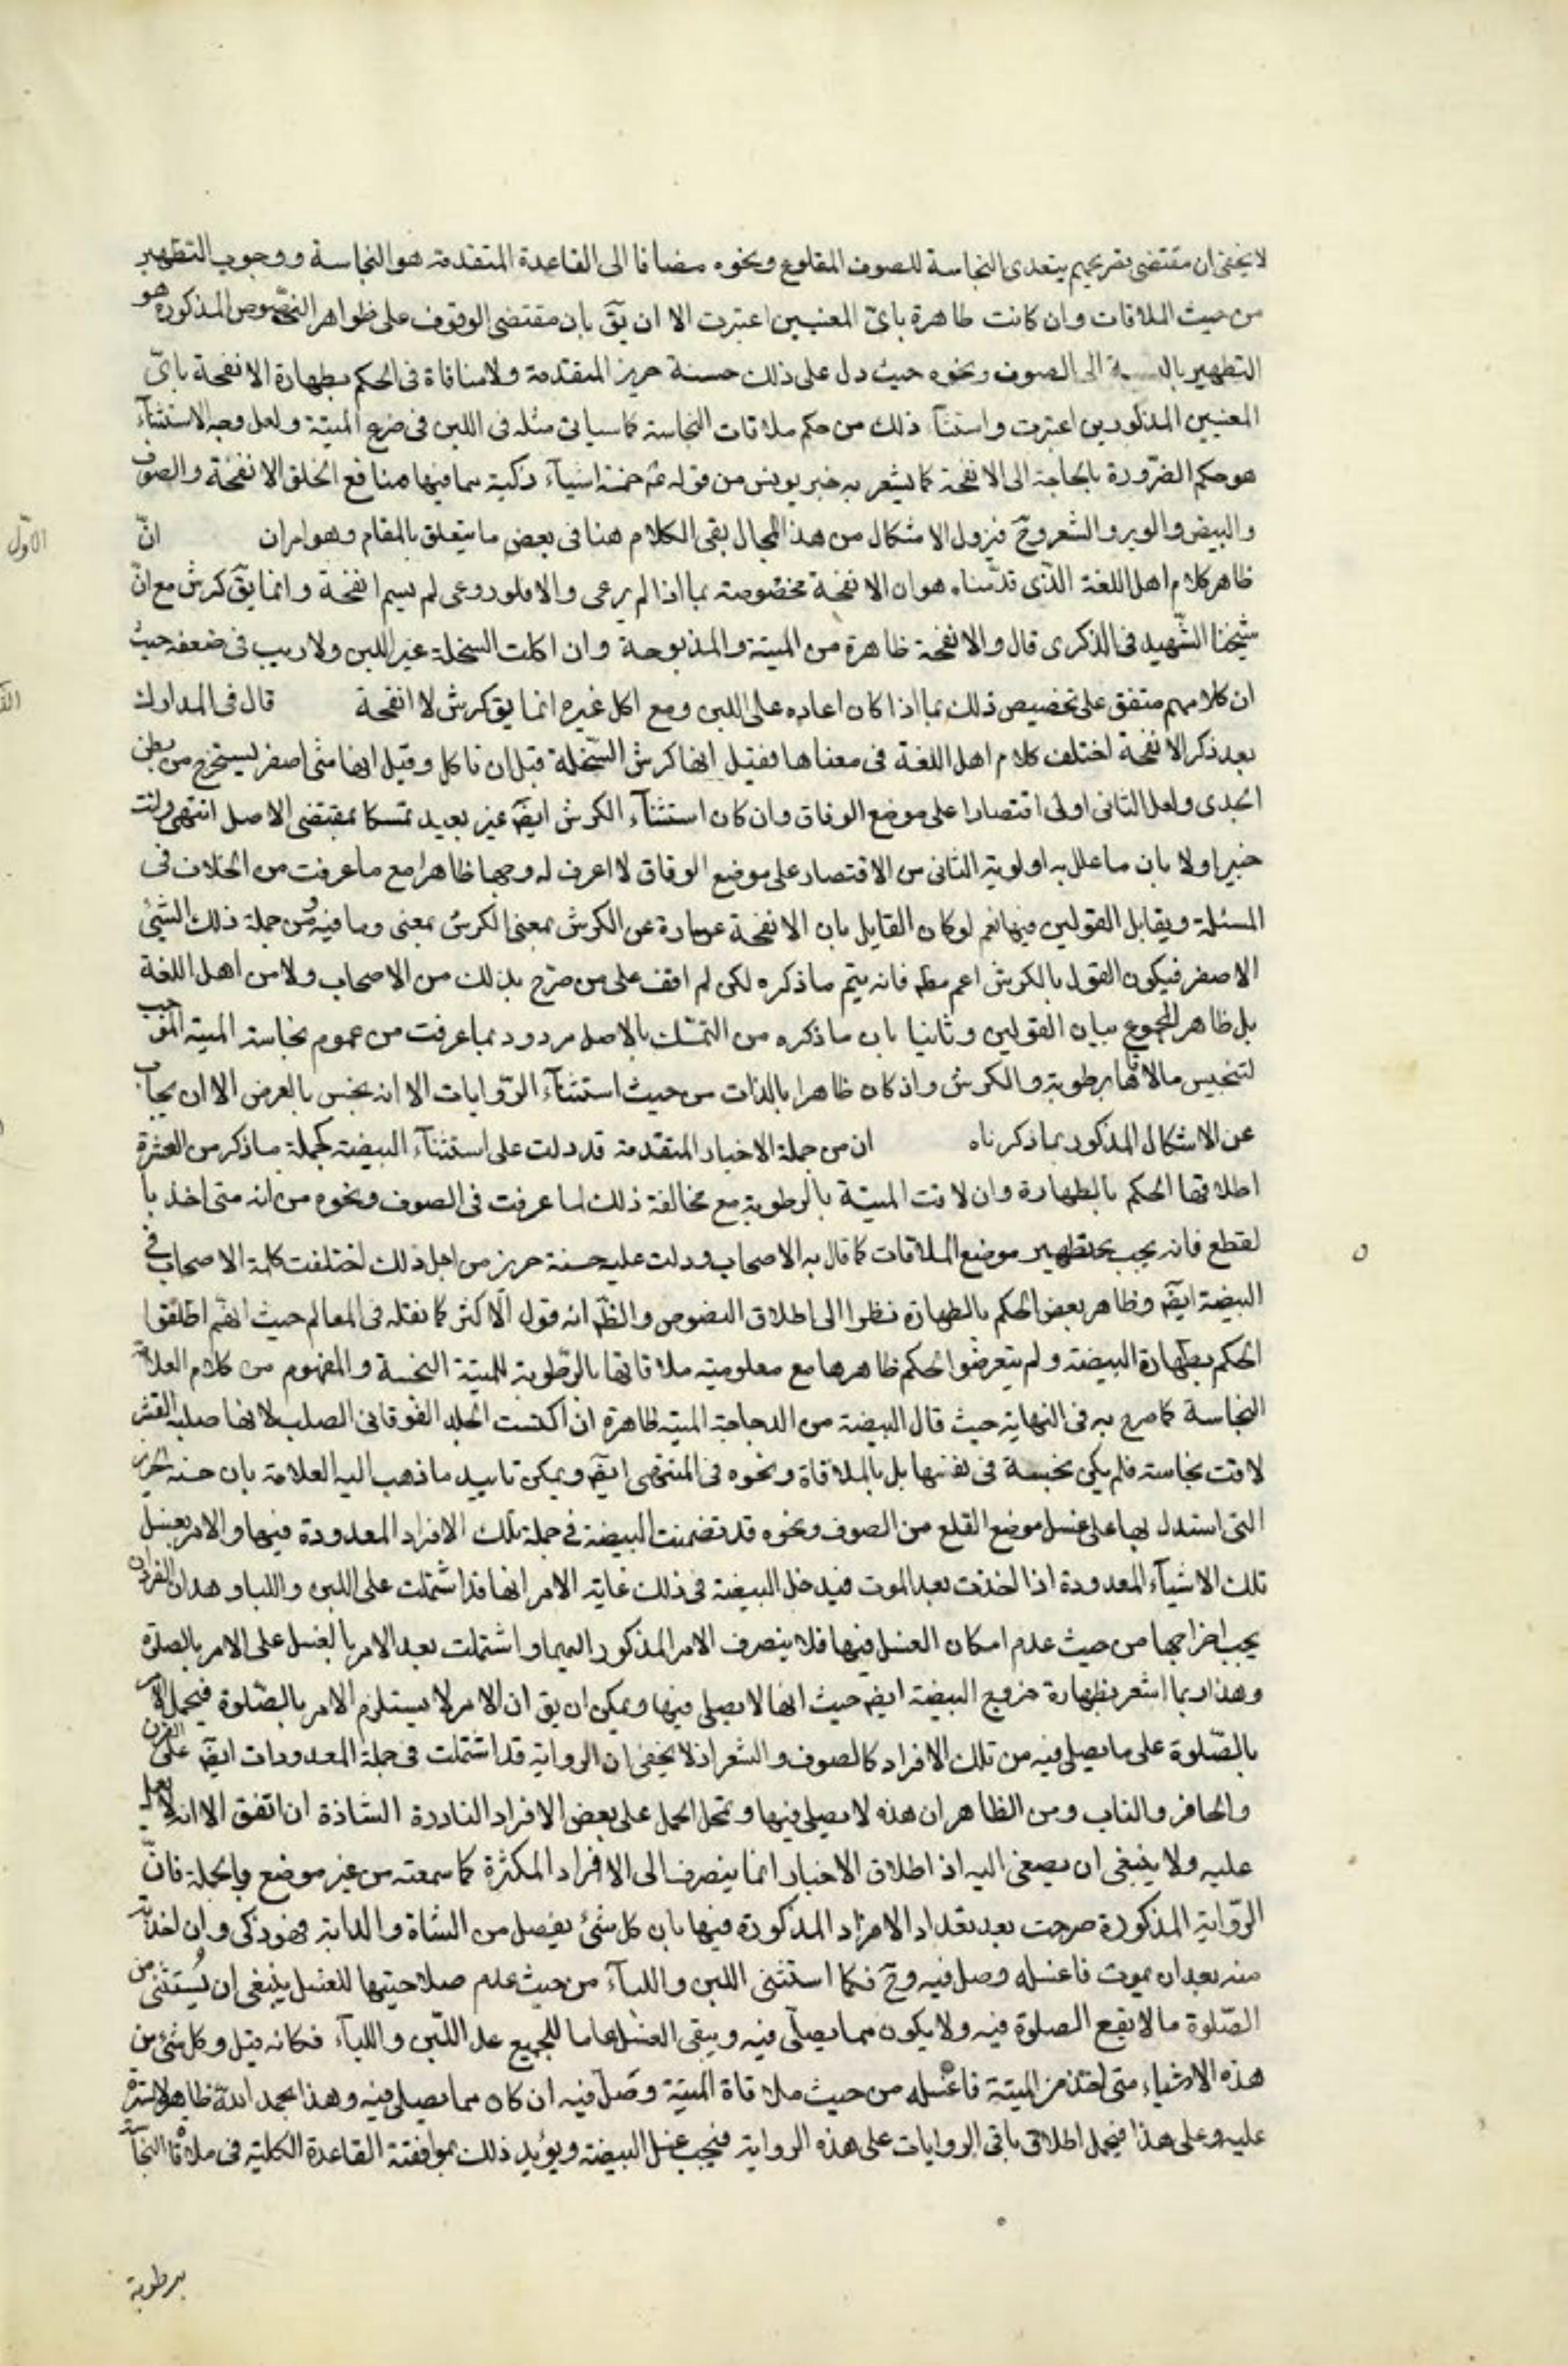 لا يخفى ان مقتضى تصريحهم بتعدى النجاسة للصوف المقلوع ونحوه مضافا الى القاعدة المتقدمة هو النجاسة ووجوب التطهير
من حيث الملاقات وان كانت طاهرة باىّ المعنيين اعتبرت الا ان يقٓ بان مقتضى الوقوف على ظواهر النصّوص المذكورة هو
التطهير بالنسبة الى الصوف ونحوه حيث دل على ذلك حسنة حريز المتقدمة ولا منافاة فى الحكم بطهارة الانفحة باىّ
المعنيين المذكورين اعتبرت واستثنآء ذلك من حكم ملاقات النجاسة كما سياتى مثله فى اللبن فى ضرع الميتة ولعل وجه الاستثنآء
هو حكم الضّرورة بالحاجة الى الانفحة كما يشعر به خبر يونس من قوله عٓ خمسة اشيآء ذكية مما فيها منافع الخلق الانفحة والصوف
والبيض والوبر والشعر وحٓ فيزول الاشكال من هذا المجال بقى الكلام هنا فى بعض ما يتعلق بالمقام وهو امران انّ
الاوّل
ظاهر كلام اهل اللغة الذّى قدّمناه هو ان الانفحة مخصّوصة بما اذا لم يرعى والا فلو رعى لم يسم انفحة وانما يقٓ كرش مع انّ
شيخنا الشّهيد فى الذكرى قال والانفحة طاهرة من الميتة والمذبوحة وان اكلت السخلة غير اللبن ولا ريب فى ضعفه حيث
ان كلامهم متفق على تخصيص ذلك بما اذا كان اعاده على اللبن ومع اكل غيره انما يق كرش لا انفحة قال فى المدارك
بعد ذكر الانفحة اختلف كلام اهل اللغة فى معناها فقيل انها كرش السّخلة قبل ان تاكل وقيل انها شئ اصفر يستخرج من بطن
الجدى ولعل الثانى اولى اقتصارا على موضع الوفاق وان كان استثنآء الكرش ايضٓ غير بعيد تمسكا بمقتضى الاصل انتهى وانت
خبير اولا بان ما علل به اولوية الثانى من الاقتصار على موضع الوفاق لا اعرف له وجها ظاهرا مع ما عرفت من الخلاف فى
المسئلة ويقابل القولين فيها نعم لو كان القايل بان الانفحة عبارة عن الكرش بمعنى الكرش بمعنى وما فيه ومن جملة ذلك الشيئ
الاصفر فيكون القول بالكرش اعم مطٓ فانه يتم ما ذكره لكن لم اقف على من صرّح بذلك من الاصحاب ولا من اهل اللغة
بل ظاهر المجموع تباين القولين وثانيا بان ما ذكره من التمسّك بالاصل مردود بما عرفت من عموم نجاسة الميتة الموجب
لتنجيس ما لاقاها برطوبة والكرش واذ كان طاهرا بالذات من حيث استثنآء الرّوايات الا انه نجس بالعرض الا ان يجاب
عن الاشكال المذكور بما ذكرناه ان من جملة الاخبار المتقدمة قد دلت على استثنآء البيضة كجملة ما ذكر من العشرة
اطلاقها الحكم بالطهارة وان لاقت الميتة بالرطوبة مع مخالفة ذلك لما عرفت فى الصوف ونحوه من انه متى اخذ با
لقطع فانه يجب تطهير موضع الملاقات كما قال به الاصحاب ودلت عليه حسنة حريز من اجل ذلك اختلفت كلمة الاصحاب فى
البيضة ايضٓ وظاهر بعض الحكم بالطهارة نظرا الى اطلاق النصوص والظٓ انه قول الاكثر كما نقله فى المعالم حيث انهم اطلقوا
الحكم بطهارة البيضة ولم يتعرضوا لحكم ظاهرها مع معلومية ملاقاتها بالرّطوبة للميتة النجسة والمفهوم من كلام العلامة
النجاسة كما صرح به فى النهاية حيث قال البيضة من الدجاجة الميتة طاهرة ان اكتست الجلد الفوقانى الصلب لانها صلبة القشر
لاقت نجاسة فلم يكن نجسة فى نفسها بل بالملاقاة ونحوه فى المنتهى ايضٓ ويمكن تاييد ما ذهب اليه العلامة بان حسنة حريز
التى استدل بها على غسل موضع القلع من الصوف ونحوه قد تضمنت البيضة فى جملة تلك الافراد المعدودة فيها والامر بغسل
تلك الاشيآء المعدودة اذا اخذت بعد الموت فيدخل البيضة فى ذلك غاية الامر انها قد اشتملت على اللبن واللبا وهذان الفردان
يجب اخراجها من حيث عدم امكان الغسل فيها فلا ينصرف الامر المذكور اليهما واشتملت بعد الامر بالغسل على الامر بالصلوة
وهذا ربما اشعر بطهارة خروج البيضة ايضٓ حيث انها لا يصلى فيها ويمكن ان يق ان الامر لا يستلزم الامر بالصّلوة فيحمل الامر
بالصّلوة على ما يصلى فيه من تلك الافراد كالصوف والشعر اذ لا يخفى ان الرواية قد اشتملت فى جملة المعدودات ايضٓ على القرن
والحافر والناب ومن الظاهر ان هذه لا يصلى فيها وتمحل الحمل على بعض الافراد النادرة الشاذة ان اتفق الا انه لا يعمل
عليه ولا ينبغى ان يصغى اليه اذ اطلاق الاخبار انما ينصرف الى الافراد المكثرة كما سمعته من غير موضع وبالجملة فانّ
الرّواية المذكورة صرحت بعد تعداد الافراد المذكورة فيها بان كل شئ يفصل من الشاة والدابة فهو ذكى وان اخذته
منه بعد ان يموت فاغسله وصل فيه وحٓ فكما استثنى اللبن واللبآء من حيث عدم صلاحيتها للغسل ينبغى ان يُستثنى من
الصّلوة ما لا يقع الصلوة فيه ولا يكون مما يصلّى فيه ويبقى الغسل عاما للجميع عدا اللّبن واللبآء فكانه قيل وكل شئ من
هذه الاشياء متى اخذ من الميتة فاغسله من حيث ملاقاة الميتة وصَلّ فيه ان كان مما يصلى فيه وهذا بحمد اللّه ظاهر لا سترة
عليه وعلى هذا فيحمل اطلاق باقى الروايات على هذه الرواية فيجب غسل البيضة ويؤيد ذلك بموافقة القاعدة الكلية فى ملاقا النجآسة
برطوبة